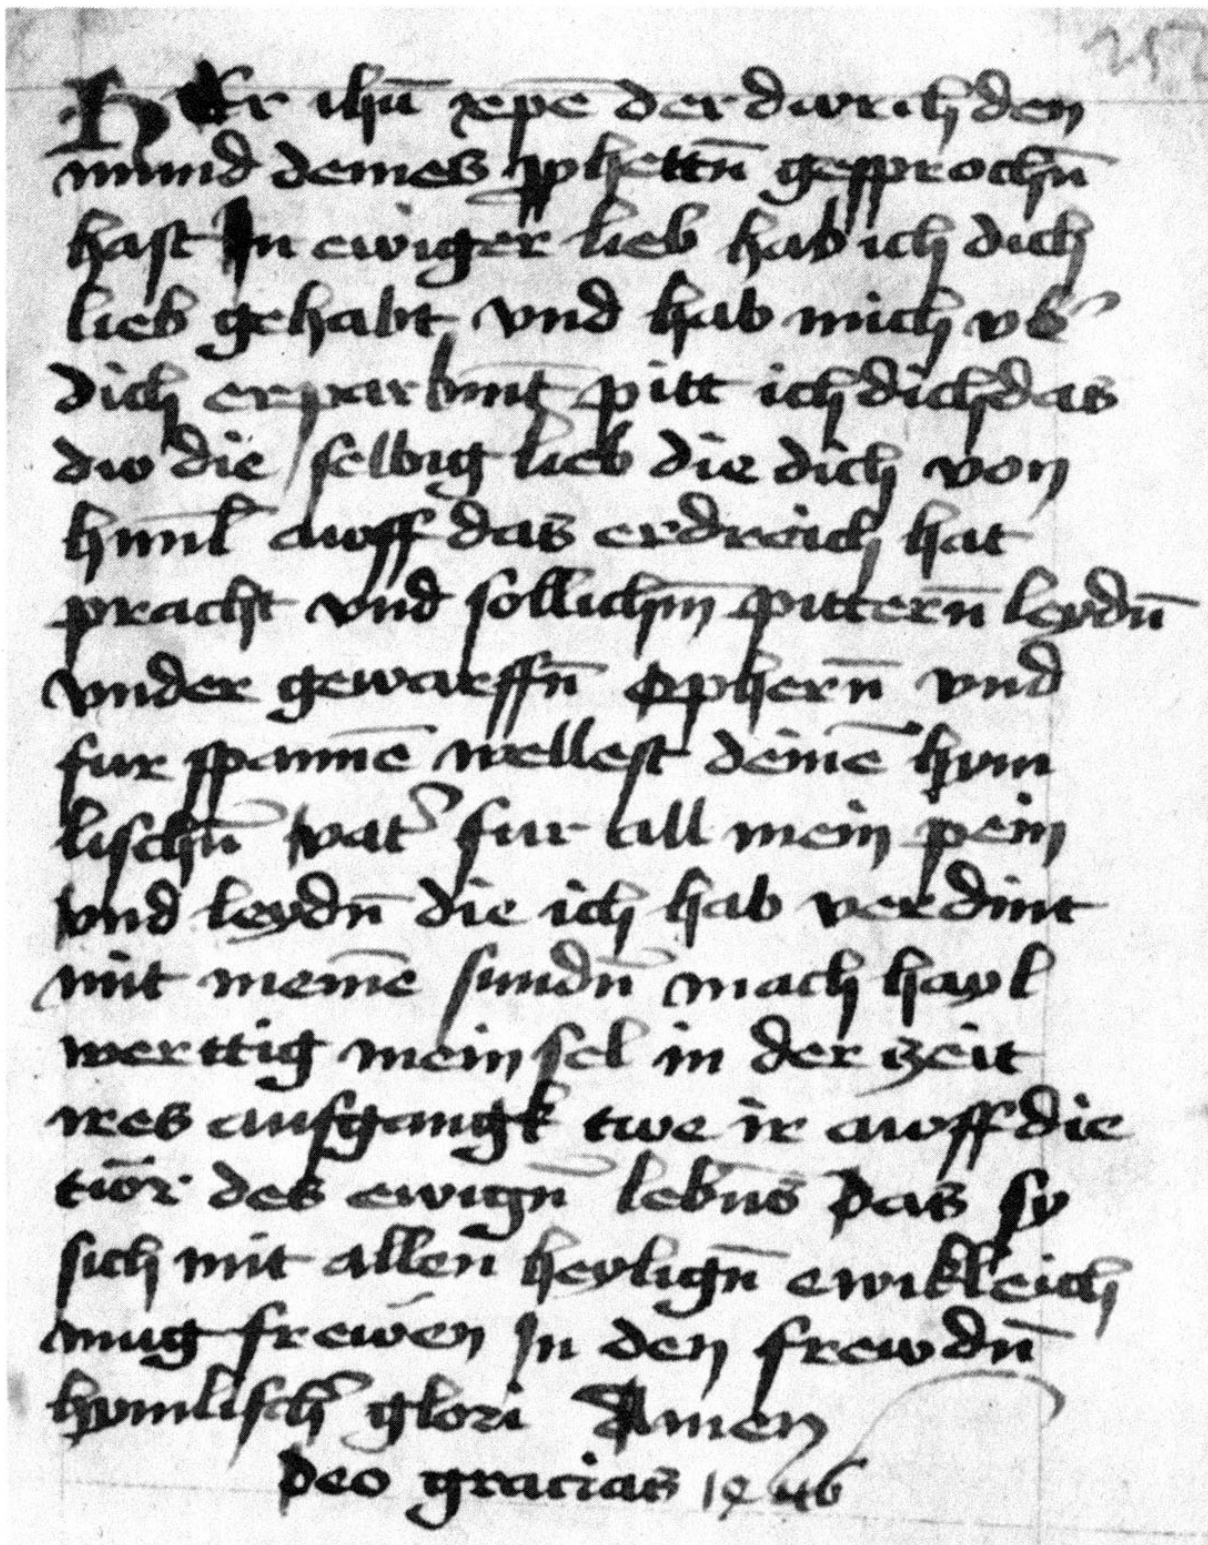 HEr ihū xpē der dwrch den
mund deines ꝓphettn̄ gesprochn̄
hast In ewiger lieb hab ich dich
lieb gehabt vnd hab mich vb̕
dich erparbmt̄ pitt ich dich das
dw die selbig lieb die dich von
himl̄ awff das erdreich hat
pracht vnd sollichm̄ pittern̄ leydn̄
vnder gewarffn̄ ophern̄ vnd
fur spannē wellest deinē hym
lischn̄ vat̕ fur all mein pein
vnd leydn̄ die ich hab verdint
mit meinē sundn̄ mach hayl
werttig mein sel in der zeit
ires ausgangk twe ir awff die
tw̄r des ewign̄ lebn̄s das sy
sich mit allen̄ heylign̄ ewikleich
mug frewen In den frewdn̄
hymlisch̕ glori Amen
Deo gracias